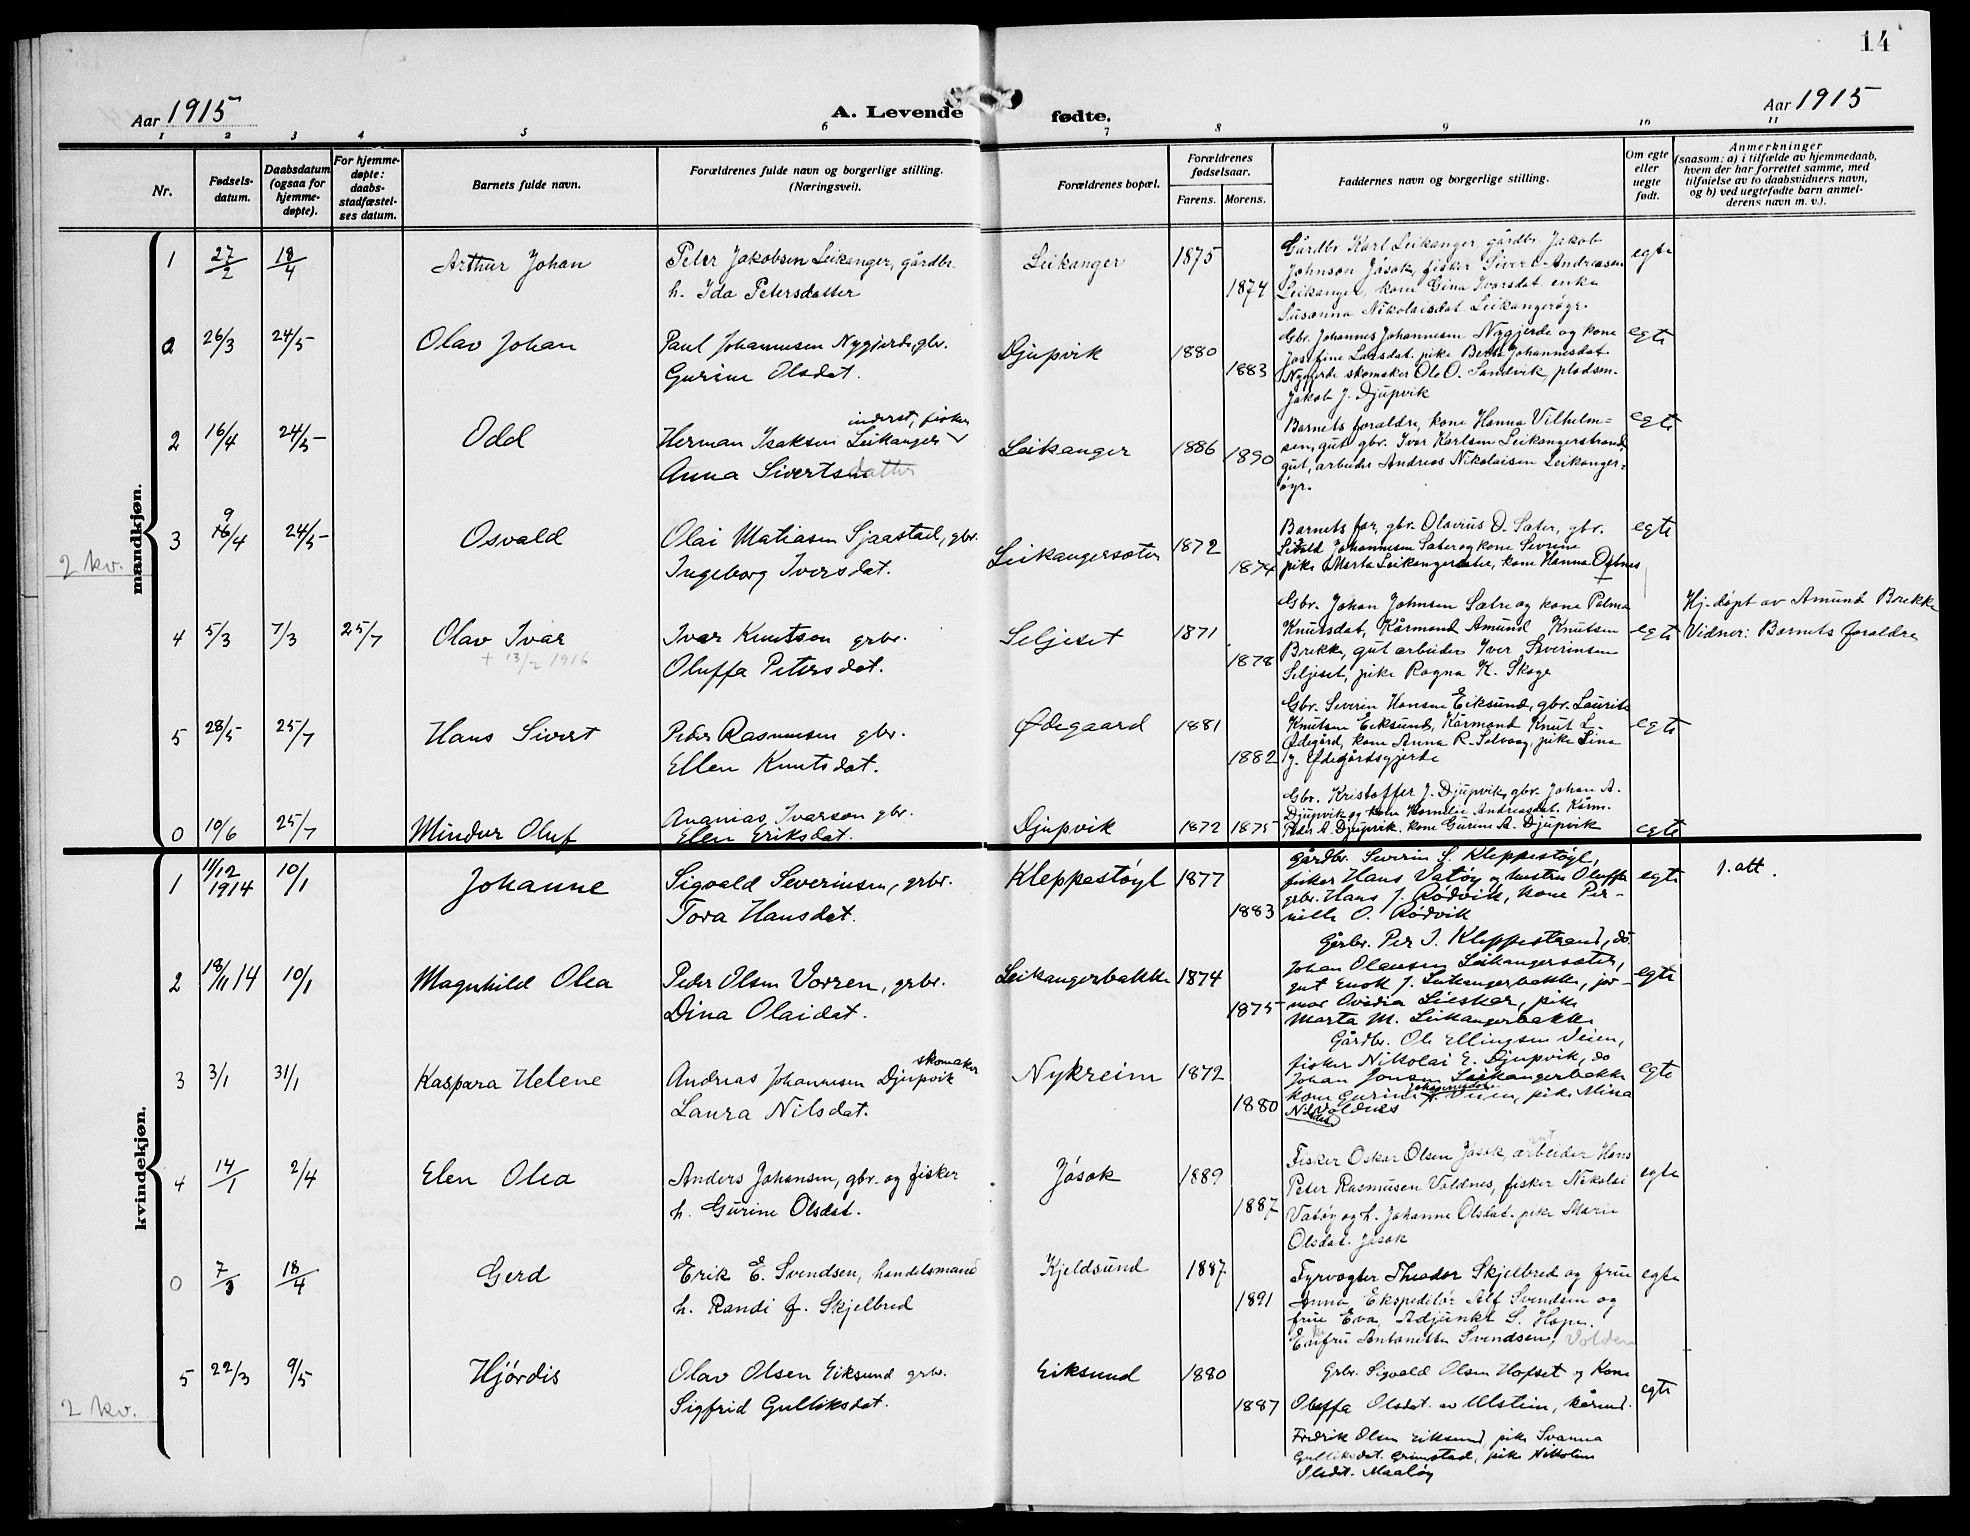 14
Aar 1915
A. Levende fødte.
Aar 1915
1 2 3 4 5 6 7 8 9 10 11
Nr.
Fødsels-
datum.
Daabsdatum
(ogsaa for
hjemme-
døpte).
For hjemme-
døpte:
daabs-
stadfæstel-
ses datum.
Barnets fulde navn.
Forældrenes fulde navn og borgerlige stilling.
(Næringsvei).
Forældrenes bopæl.
Forældrenes
fødselsaar.
Farens. Morens.
Faddernes navn og borgerlige stilling.
Om egte
eller
uegte
født.
Anmerkninger
(saasom: a) i tilfælde av hjemmedaab,
hvem der har forrettet samme, med
tilføielse av to daabsvidners navn,
og b) ved uegtefødte barn anmel-
derens navn m. v.).
mandkjøn.
2 kv.
1 27/2 18/4 Arthur Johan
Peter Jakobsen Leikanger, gårdbr.
h. Ida Petersdatter
Leikanger 1875 1874
Gårdbr Karl Leikanger gårdbr Jakob
Johnson Jøsok, fisker Sivert Andreasen
Leikanger, kone Gina Ivarsdat enke
Susanna Nikolaisdat Leikangerøyr.
egte
0 26/3 24/5 Olav Johan
Paul Johannesen Nygjerde, gbr.
Gurine Olsdat.
Djupvik 1880 1883
Gbr. Johannes Johannesen Nygjerde og kone
Josefine Larsdat. pike Berte Johannesdat.
Nygjerde skomaker Ole O. Sandvik, pladsm.
Jakob J. Djupvik
egte
2 16/4 24/5 Odd
inderst, fisker
Herman Isaksen Leikanger
Anna Sivertsdatter
Leikanger 1886 1890
Barnets foraldre, kone Hanna Vilhelm=
sen, gut gbr. Ivar Karlsen Leikangerstrand,
gut, arbeider Andreas Nikolaisen Leikanger=
øyr.
egte
3 9/4 24/5 Osvald
Olai Matiasen Sjaastad, gbr.
Ingeborg Iversdat.
Leikangersæter 1872 1874
Barnets far, gbr. Olavrus O. Sæter, gbr.
Johannesen Sæter og kone Sevrine
pike Marta Leikangersæter, kone Hanna
egte
4 5/3 7/3 25/7 Olav Ivar
+ 13/2 1916
Ivar Knutsen grbr.
Oluffa Petersdat.
Seljeset 1871 1878
Gbr. Johan Johnsen Sætre og kone Palma
Knutsdat, Kårmand Amund Knutsen
Brekke, gut arbeider Iver Severinsen
Seljeset, pike Ragna K. Skoge
egte
Hj. døpt av Amund Brekke
Vidner: Barnets foraldre
5 28/5 25/7 Hans Sivert
Peder Rasmussen gbr.
Ellen Knutsdat.
Ødegaard 1881 1882
Gbr. Severin Hansen Eiksund, gbr. Laurits
Knutsen Eiksund, Kårmand Knut L.
Ødegård, kone Anna R. Solvaag, pike Lina
J. Ødegårdsgjerde
egte
0 10/6 25/7 Mindur Oluf
Ananias Ivarson gbr.
Elen Eriksdat.
Djupvik 1872 1875
Gbr. Kristoffer J. Djupvik, gbr. Johan A.
Djupvik og kone Kornelie Andreasdat. Kårm.
Peder A. Djupvik. kone Gurine A. Djupvik
egte
kvindekjøn.
2 kv.
1 11/12 1914 10/1 Johanne
Sigvald Severinsen, grbr.
Tora Hansdat.
Kleppestøyl 1877 1883
Gårdbr. Severin S. Kleppestøyl,
fisker Hans Vatøy og hustru Oluffa
grbr. Hans J. Rødvik, kone Per-
nille O. Rødvik
egte
1. att.
2 18/11 14 10/1 Magnhild Olea
Peder Olsen Vorren, grbr.
Dina Olaidat.
Leikangerbakke 1874 1875
Gårbr. Per I. Kleppestrand, do.
Johan Olausen Leikangersæter,
gut Enok J. Leikangerbakke, jor-
mor Ovidia Lieskar, pike
Marta M. Leikangerbakke
egte
3 3/1 31/1 Kaspara Helene
skomaker
Andreas Johannesen Djupvik
Laura Nilsdat.
Nykreim 1872 1880
Gårdbr. Ole Ellingsen Veien,
fisker Nikolai E. Djupvik, do
Johan Jonsen Leikangerbakke
kone Gurine Veien, pike Mina
Voldnes
egte
4 14/1 2/4 Elen Olea
Anders Johansen, gbr. og fisker
h. Gurine Olsdat.
Jøsok 1889 1887
Fisker Oskar Olsen Jøsok, arbeider Hans
Peter Rasmusen Voldnes, fisker Nikolai
Vatøy og h. Johanne Olsdat. pike Marie
Olsdat. Jøsok
egte
0 7/3 18/4 Gerd
Erik E. Svendsen, handelsmand
h. Randi f. Skjelbred
Kjeldsund 1887 1891
Fyrvogter Theodor Skjelbred og frue
Anna, Ekspeditør Alf Svendsen og
frue Eva, Adjunkt S. Hope.
Enkefru Antonette Svendsen, Volden
egte
5 22/3 9/5 Hjørdis
Olav Olsen Eiksund grbr.
Sigfrid Gulliksdat.
Eiksund 1880 1887
Grbr. Sigvald Olsen Hofset og Kone
Oluffa Olsdat. av Ulstein, kårmd.
Fredrik Olsen Eiksund, pike Svanna
Gulliksdat. Grimstad, pike Nikoline
Olsdt. Maaløy
egte